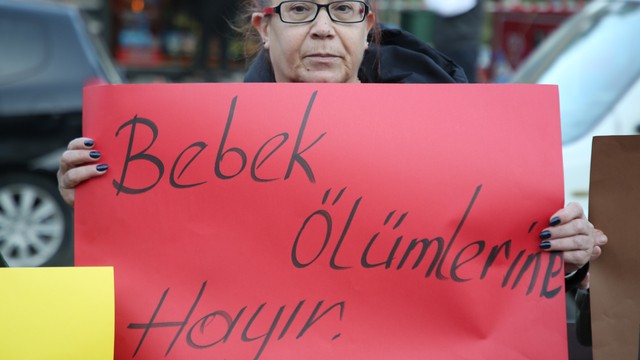 Bebek
Ölümlerine
Hayır.